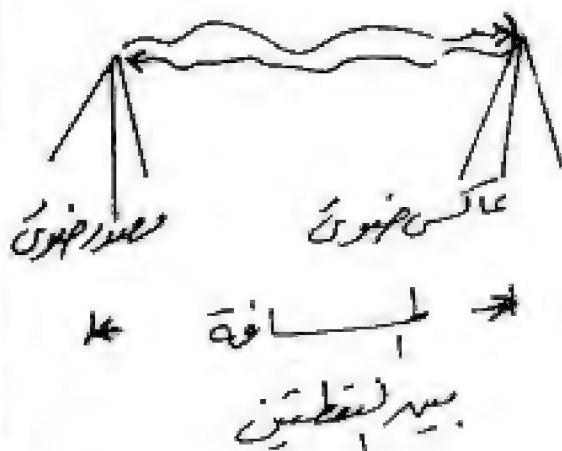 عاكس ضوئي
مصدر ضوئي
المسافة
بين النقطتين